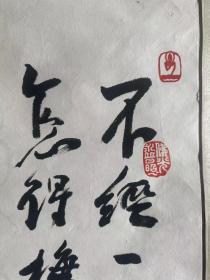 不經一
怎得梅